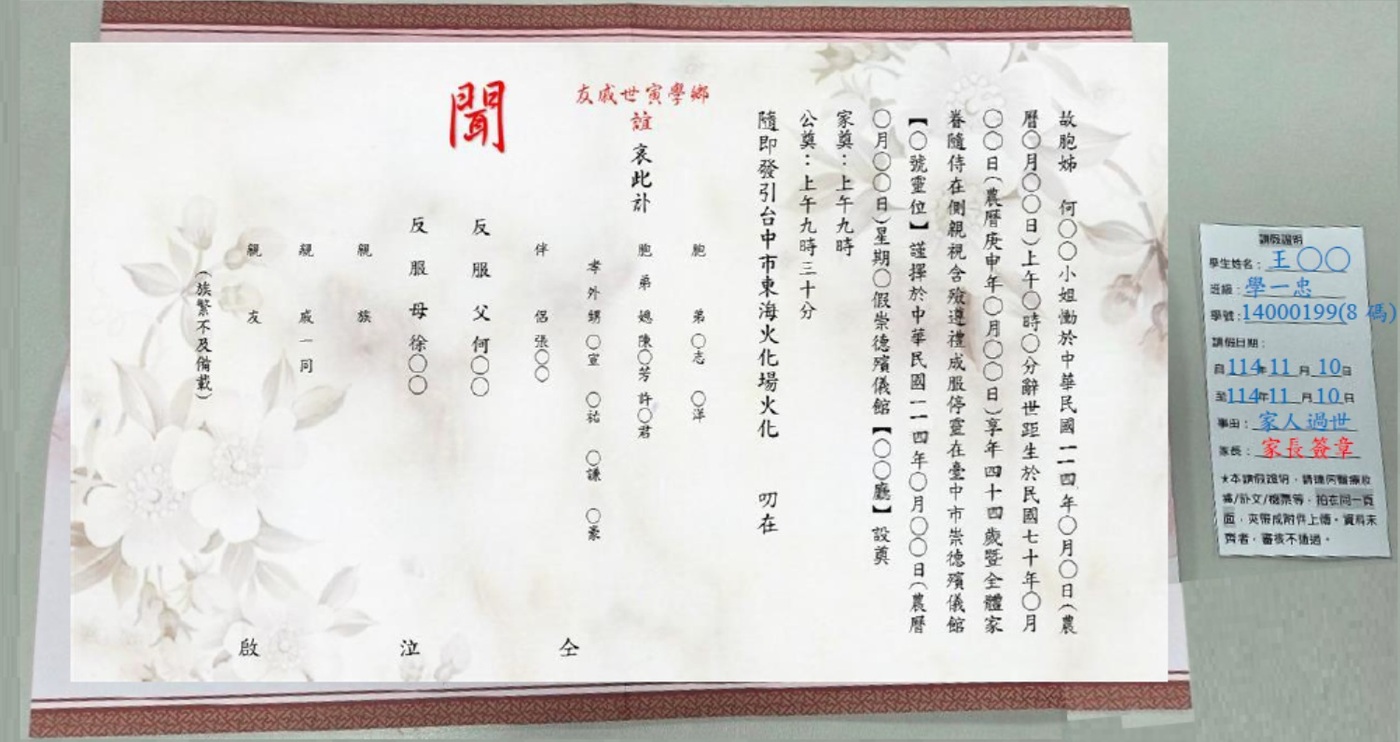 故胞姊　何〇〇小姐慟於中華民國一一四年〇月〇日(農
曆〇月〇〇日)上午〇時〇分辭世距生於民國七十年〇月
〇〇日(農曆庚申年〇月〇〇日)享年四十四歲暨全體家
眷隨侍在側親視含殮遵禮成服停靈在臺中市崇德殯儀館
【〇號靈位】謹擇於中華民國一一四年〇月〇〇日(農曆
〇月〇〇日)星期〇假崇德殯儀館【〇〇廳】設奠
家奠：上午九時
公奠：上午九時三十分
隨即發引台中市東海火化場火化　叨在
鄉學寅世戚友
誼 哀此訃
聞
胞弟〇志　〇洋
胞弟媳 陳〇芳 許〇君
孝外甥〇宣　〇祐　〇謙　〇豪
伴侶張〇〇
反服父何〇〇
反服母徐〇〇
親族
親戚一同
親友
(族繁不及備載)
仝
泣
啟
請假證明
學生姓名：王〇〇
班級：學一忠
學號：14000199(8 碼)
請假日期：
自114年11月10日
至114年11月10日
事由：家人過世
家長：家長簽章
★本請假證明，請連同醫療收
據/訃文/機票等，拍在同一頁
面，夾帶成附件上傳。資料未
齊者，審核不通過。